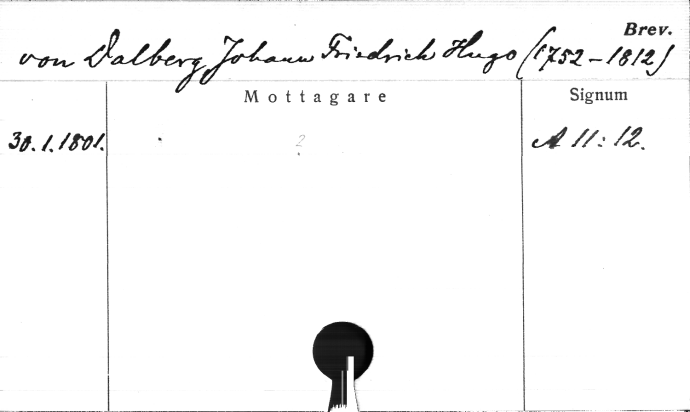 Brev.
von Dalberg, Johann Friedrich Hugo (1752-1812)
Mottagare Signum
30.1.1801. 2 A 11:12.